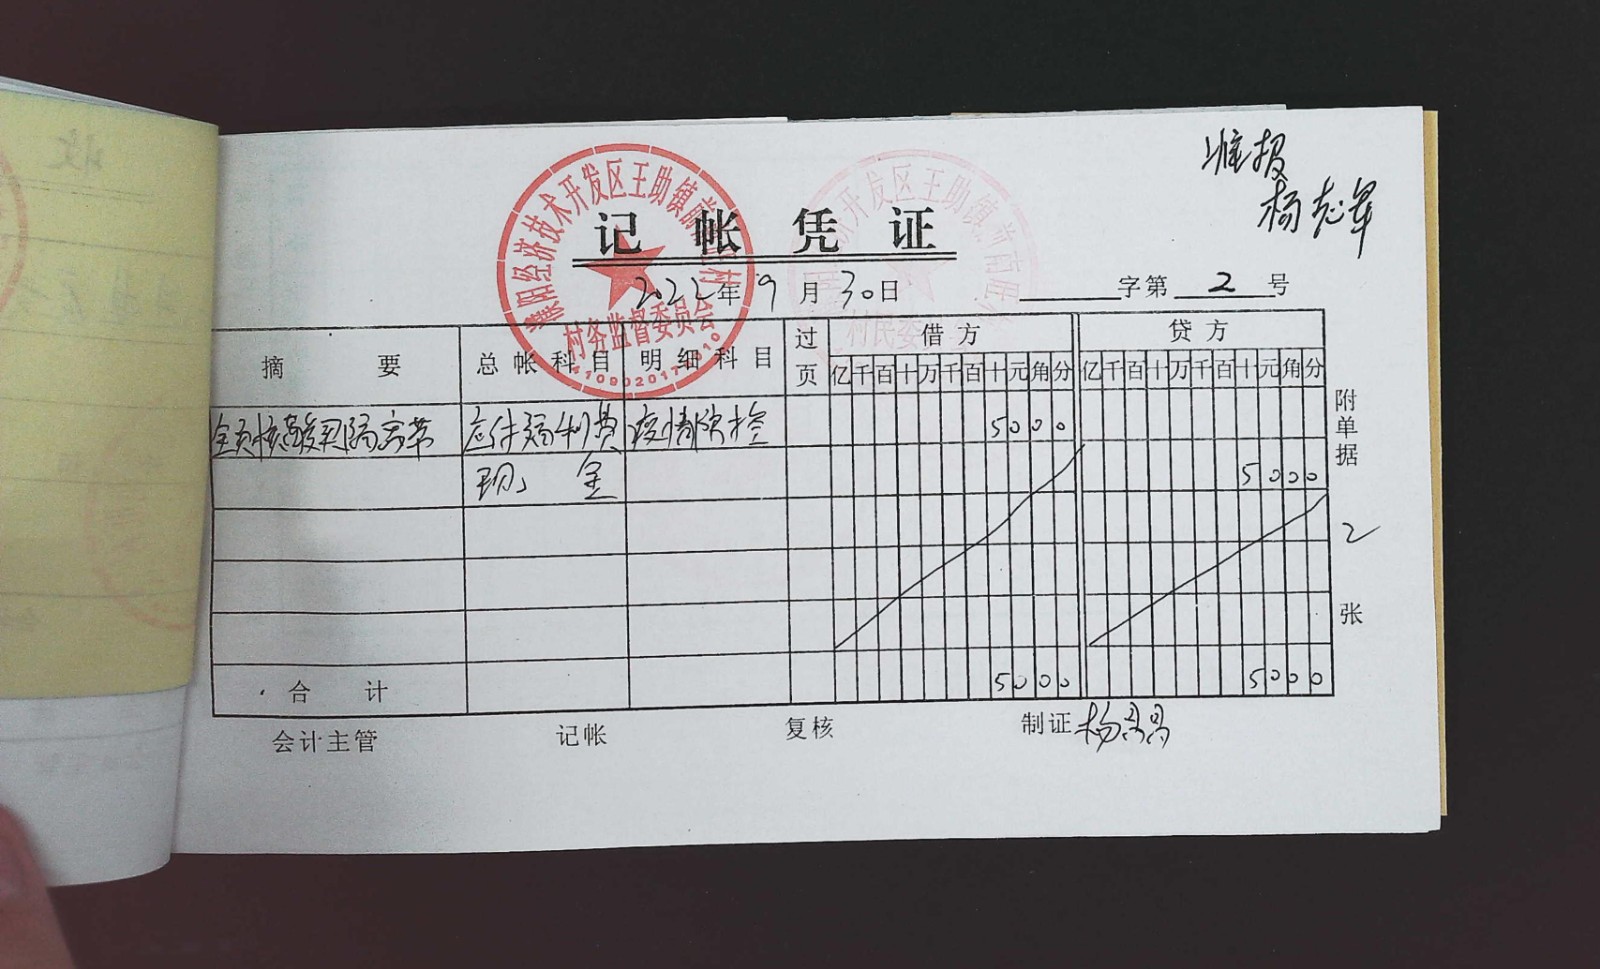 准报
杨志军
记 帐 凭 证
2022年9月30日
字第 2 号
摘 要 总帐科目 明细科目 过页 借方 贷方
亿千百十万千百十元角分 亿千百十万千百十元角分
全员核酸买隔离带 应付福利费 疫情防控 5000
现金 5000
合 计 5000 5000
附单据 2 张
会计主管 记帐 复核 制证
濮阳经济技术开发区王助镇
村务监督委员会
开发区王助镇
村民委